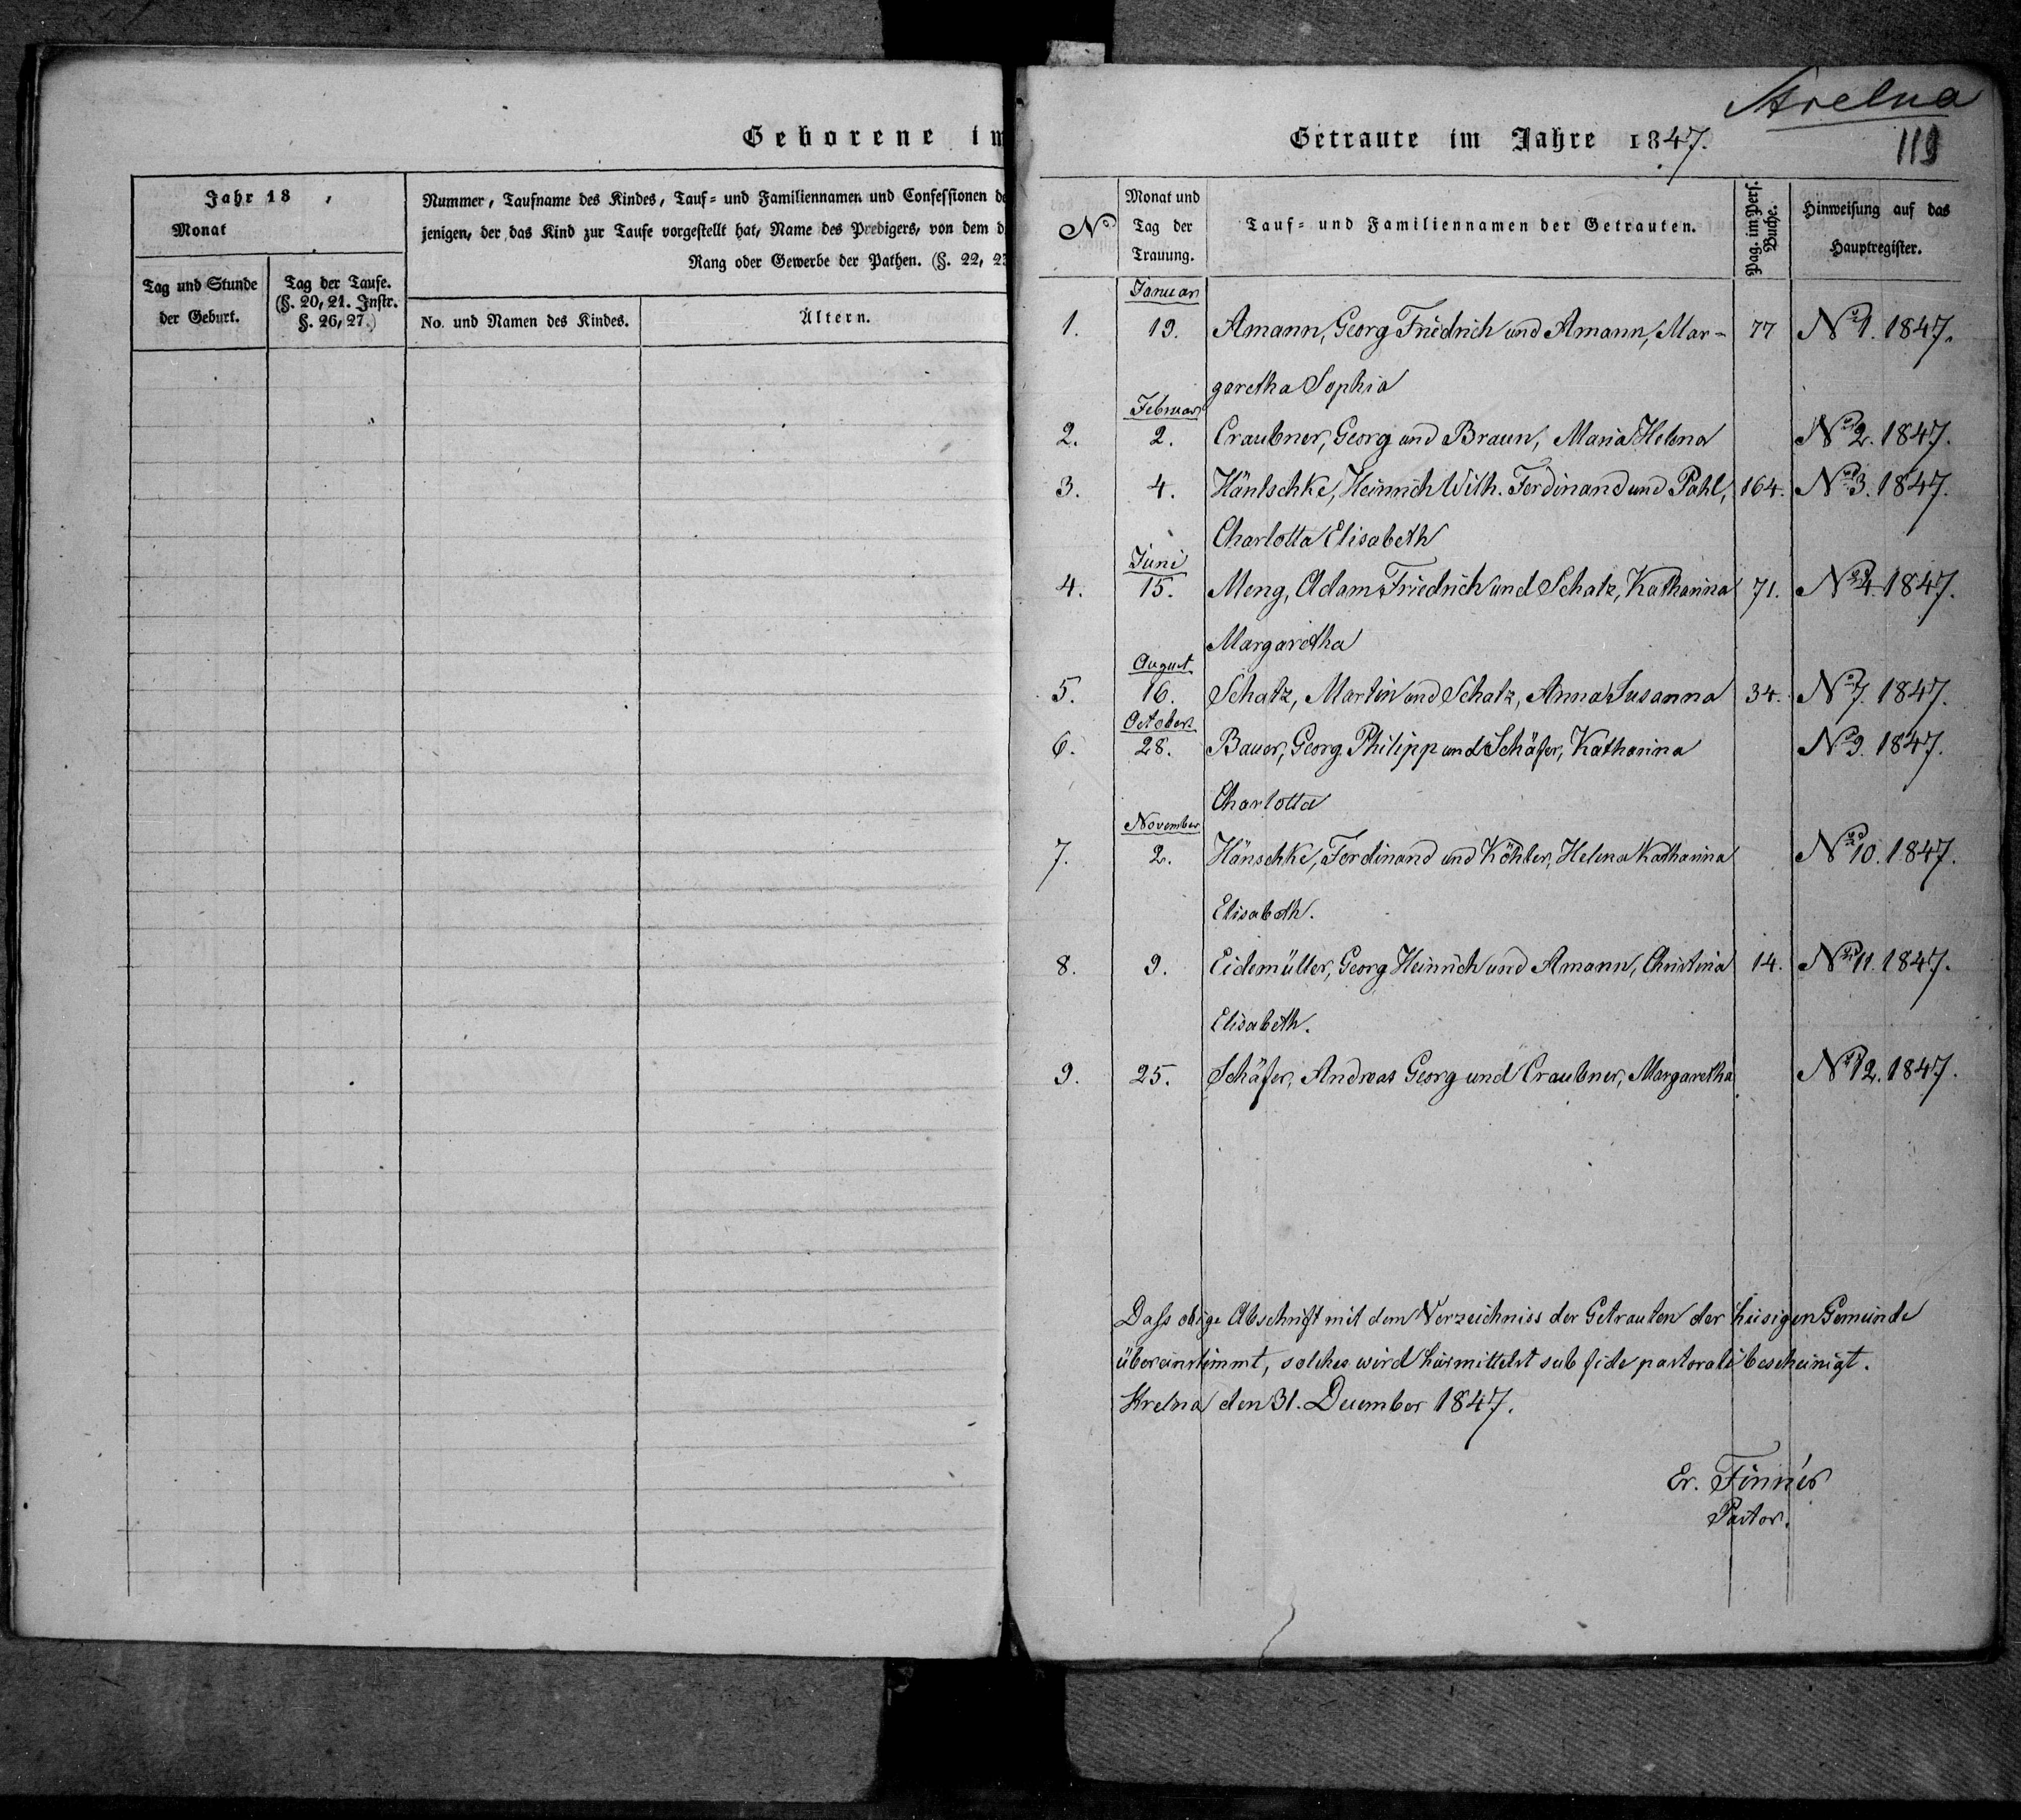 Geborene im
Jahr 18 ,
Monat
Nummer, Taufname des Kindes, Tauf- und Familiennamen und Confessionen de
jenigen, der das Kind zur Taufe vorgestellt hat, Name des Predigers, von dem d
Rang oder Gewerbe der Pathen. (§. 22, 23
Tag und Stunde
der Geburt.
Tag der Taufe.
(§. 20, 21. Instr.
§. 26, 27.)
No. und Namen des Kindes.
Ältern.
Strelna
119
Getraute im Jahre 1847.
No
Monat und
Tag der
Trauung.
Tauf- und Familiennamen der Getrauten.
Pag. im Pers.
Buche.
Hinweisung auf das
Hauptregister.
Januar
1. 19. Amann, Georg Friedrich und Amann, Mar- 77 No 1. 1847.
garetha Sophia
Februar
2. 2. Craubner, Georg und Braun, Maria Helena No 2. 1847.
3. 4. Häntschke, Heinrich Wilh. Ferdinand und Pahl, 164. No 3. 1847.
Charlotta Elisabeth
Juni
4. 15. Meng, Adam Friedrich und Schatz, Katharina 71. No 4. 1847.
Margaretha
August
5. 16. Schatz, Martin und Schatz, Anna Susanna 34. No 7. 1847.
October
6. 28. Bauer, Georg Philipp und Schäfer, Katharina No 9. 1847.
Charlotta
November
7. 2. Hänschke, Ferdinand und Köhler, Helena Katharina No 10. 1847.
Elisabeth.
8. 9. Eidemüller, Georg Heinrich und Amann, Christina 14. No 11. 1847.
Elisabeth.
9. 25. Schäfer, Andreas Georg und Craubner, Margaretha No 12. 1847.
Dass obige Abschrift mit dem Verzeichniss der Getrauten der hiesigen Gemeinde
übereinstimmt, solches wird hiermittelst sub fide pastorali bescheinigt.
Strelna den 31. December 1847.
Er.
Pastor.